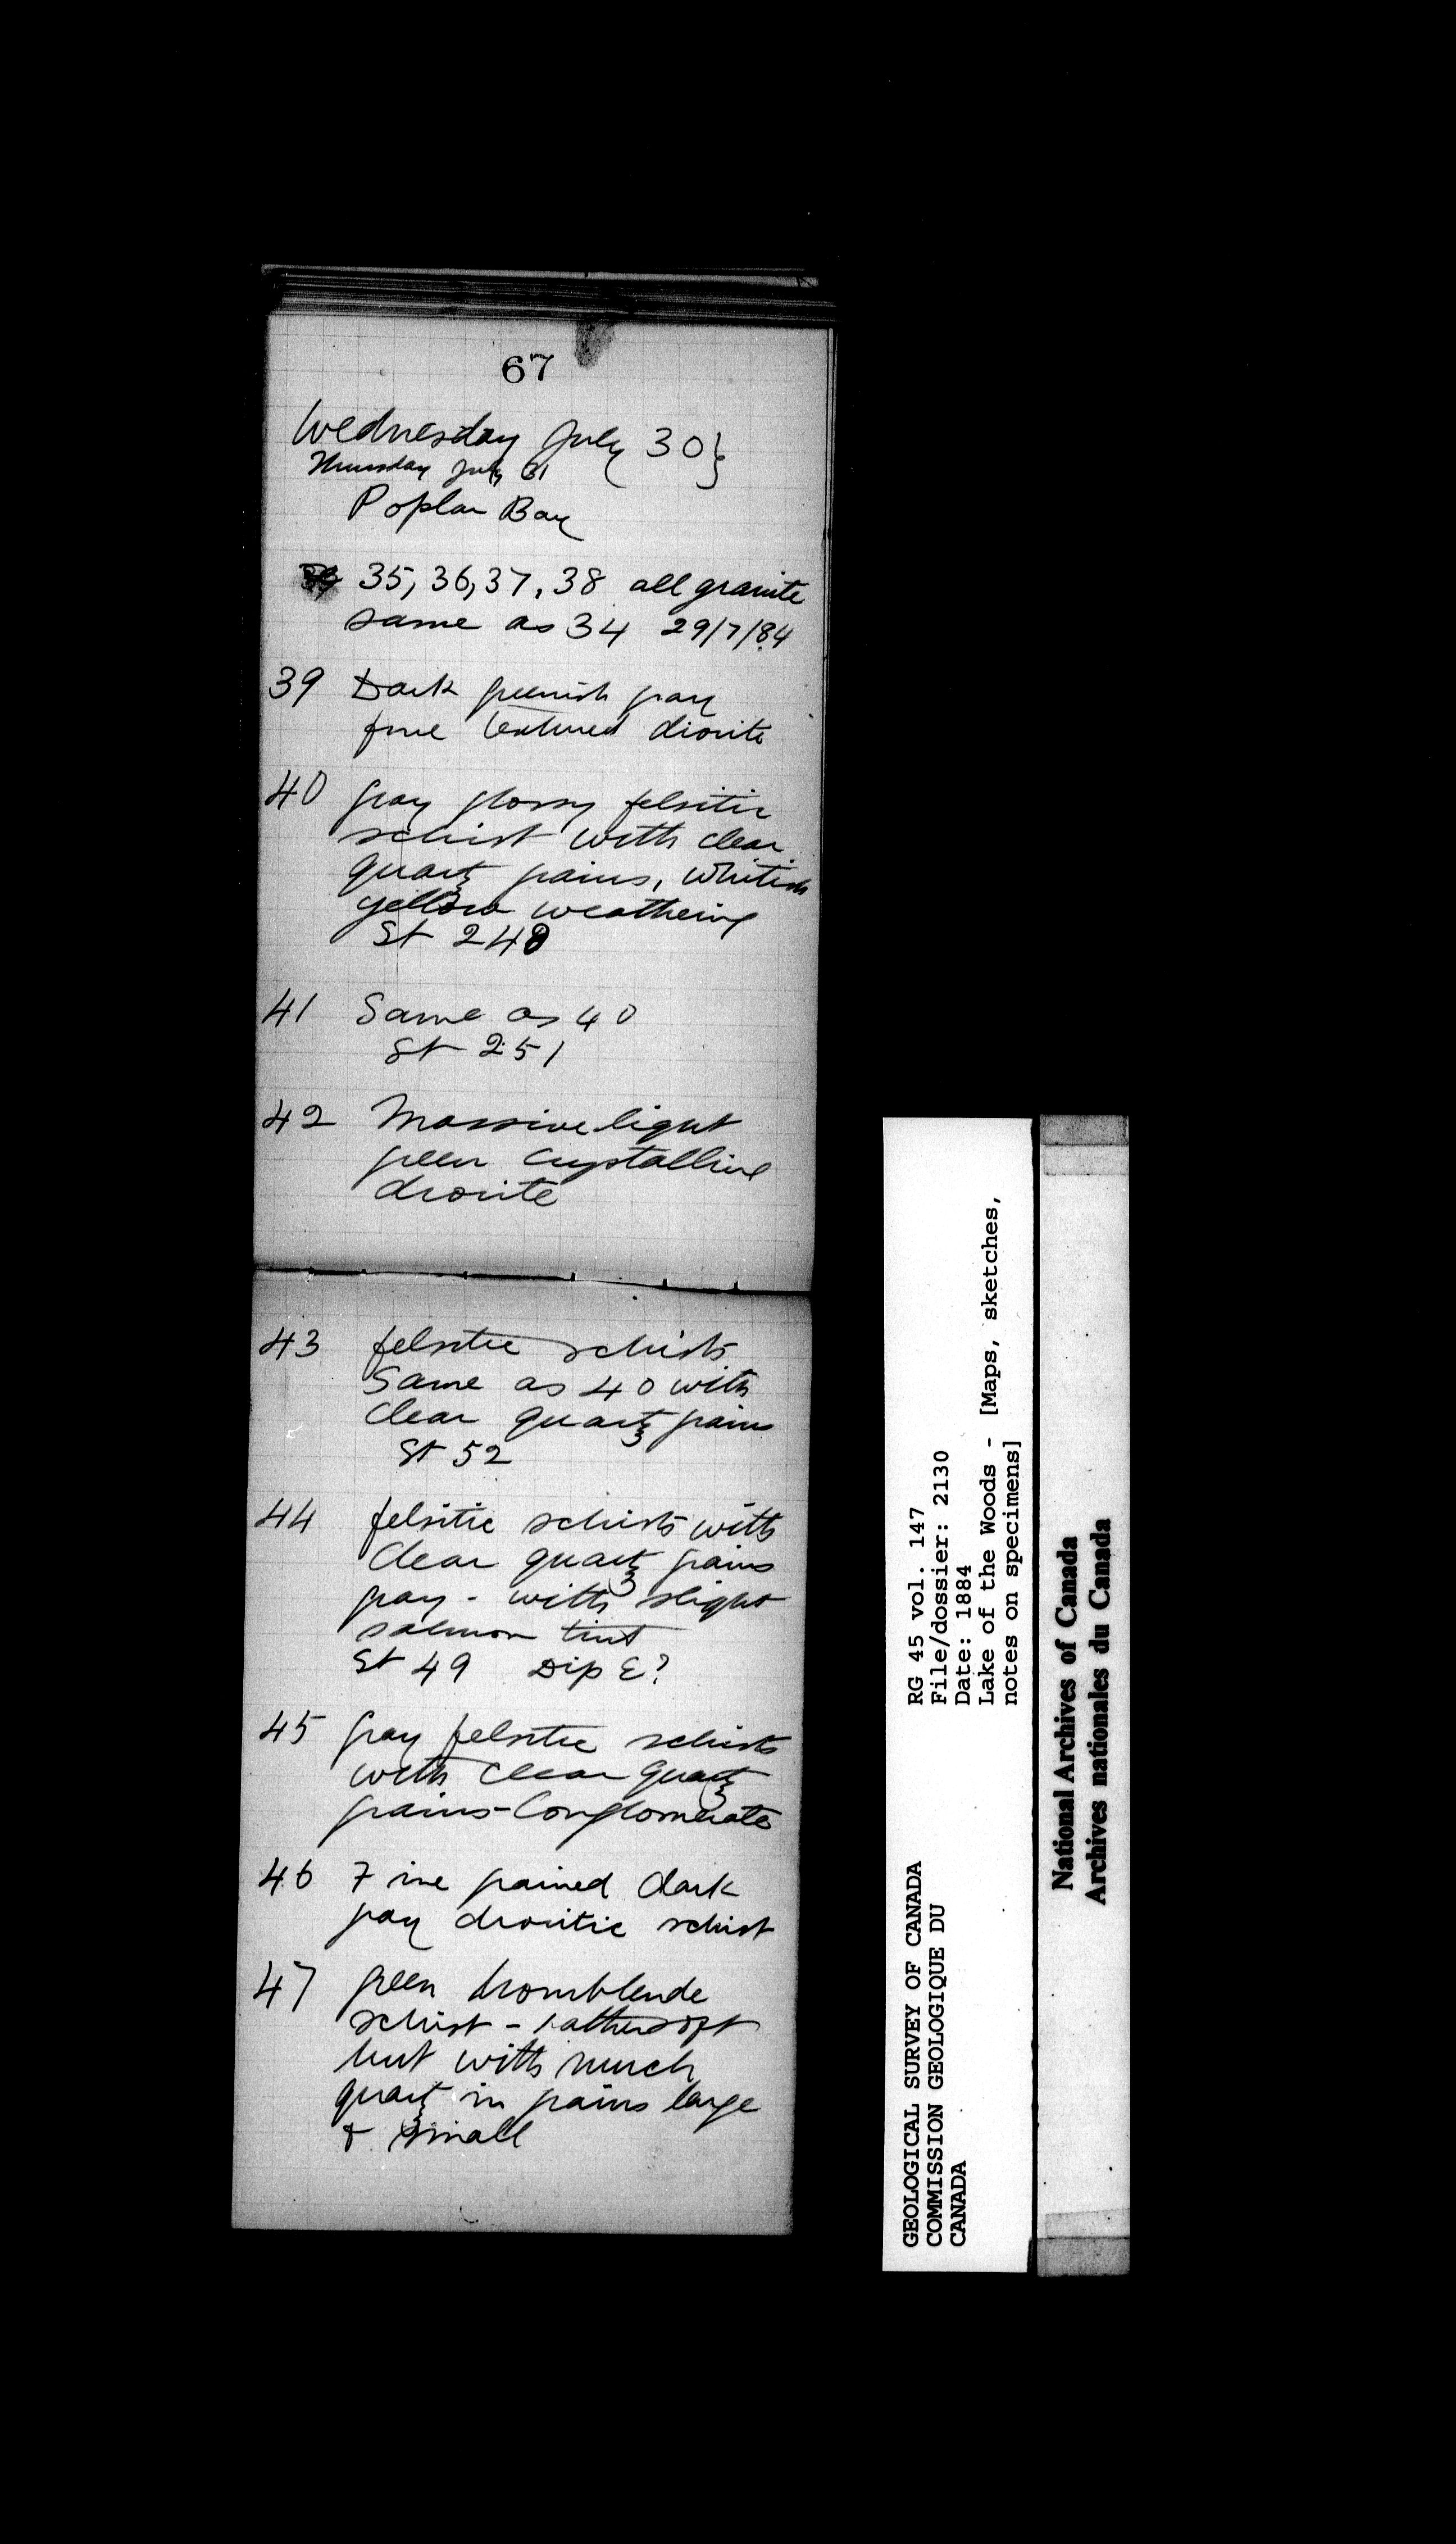 67
Wednesday July 30}
Thursday July 31
Poplar Bay
35, 36, 37, 38 all granite
same as 34 29/7/84
39 Dark greenish gray
fine textured diorite
40 gray glossy felsitic
schist with clear
quartz grains, whitish
yellow weathering
St 248
41 Same as 40
St 251
42 Massive light
green crystalline
diorite
43 felsitic schists
Same as 40 with
clear quartz grains
St 52
44 felsitic schists with
clear quartz grains
gray - with slight
salmon tint
St 49 Dip E?
45 gray felsitic schists
with clear quartz
grains - Conglomerate
46 Fine grained dark
gray dioritic schist
47 green hornblende
schist - rather soft
but with much
quartz in grains large
& small
GEOLOGICAL SURVEY OF CANADA
COMMISSION GEOLOGIQUE DU
CANADA
RG 45 vol. 147
File/dossier: 2130
Date: 1884
Lake of the Woods - [Maps, sketches,
notes on specimens]
National Archives of Canada
Archives nationales du Canada